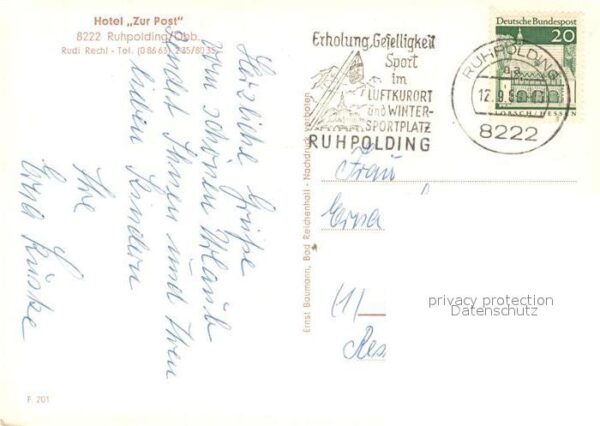 Hotel „Zur Post"
8222 Ruhpolding/Obb.
Rudi Rechl - Tel. (0 86 63) 235/8035
Herzliche Grüße
vom schönen Urlaub
sendet Ihnen und Ihren
lieben Kindern
Ihre
F 201
Ernst Baumann, Bad Reichenhall - Nachdruck verboten
Erholung, Geselligkeit
Sport
im
LUFTKURORT
und WINTER-
SPORTPLATZ
RUHPOLDING
Deutsche Bundespost
20
LORSCH/HESSEN
RUHPOLDING
8222
Frau
Erna
(1)
Res
privacy protection
Datenschutz